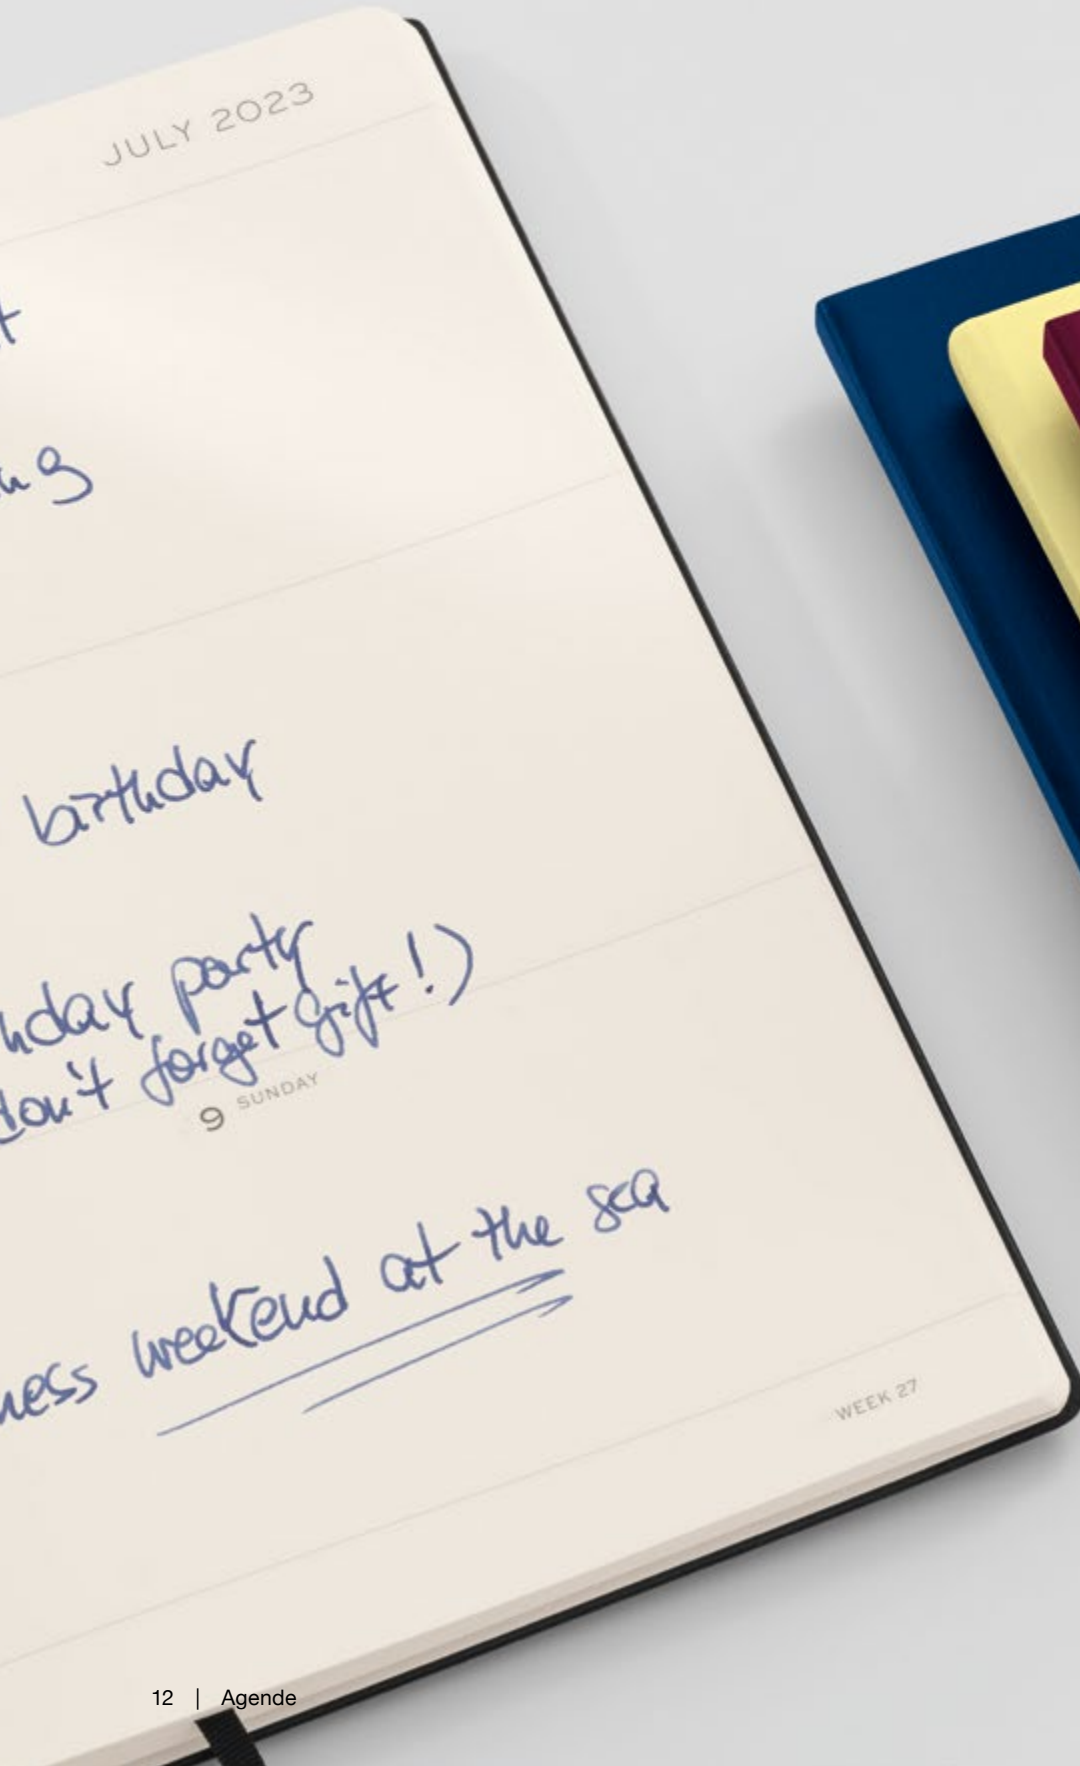 JULY 2023
birthday
hday party
don't forget gift!)
9 SUNDAY
ness weekend at the sea
WEEK 27
12 | Agende